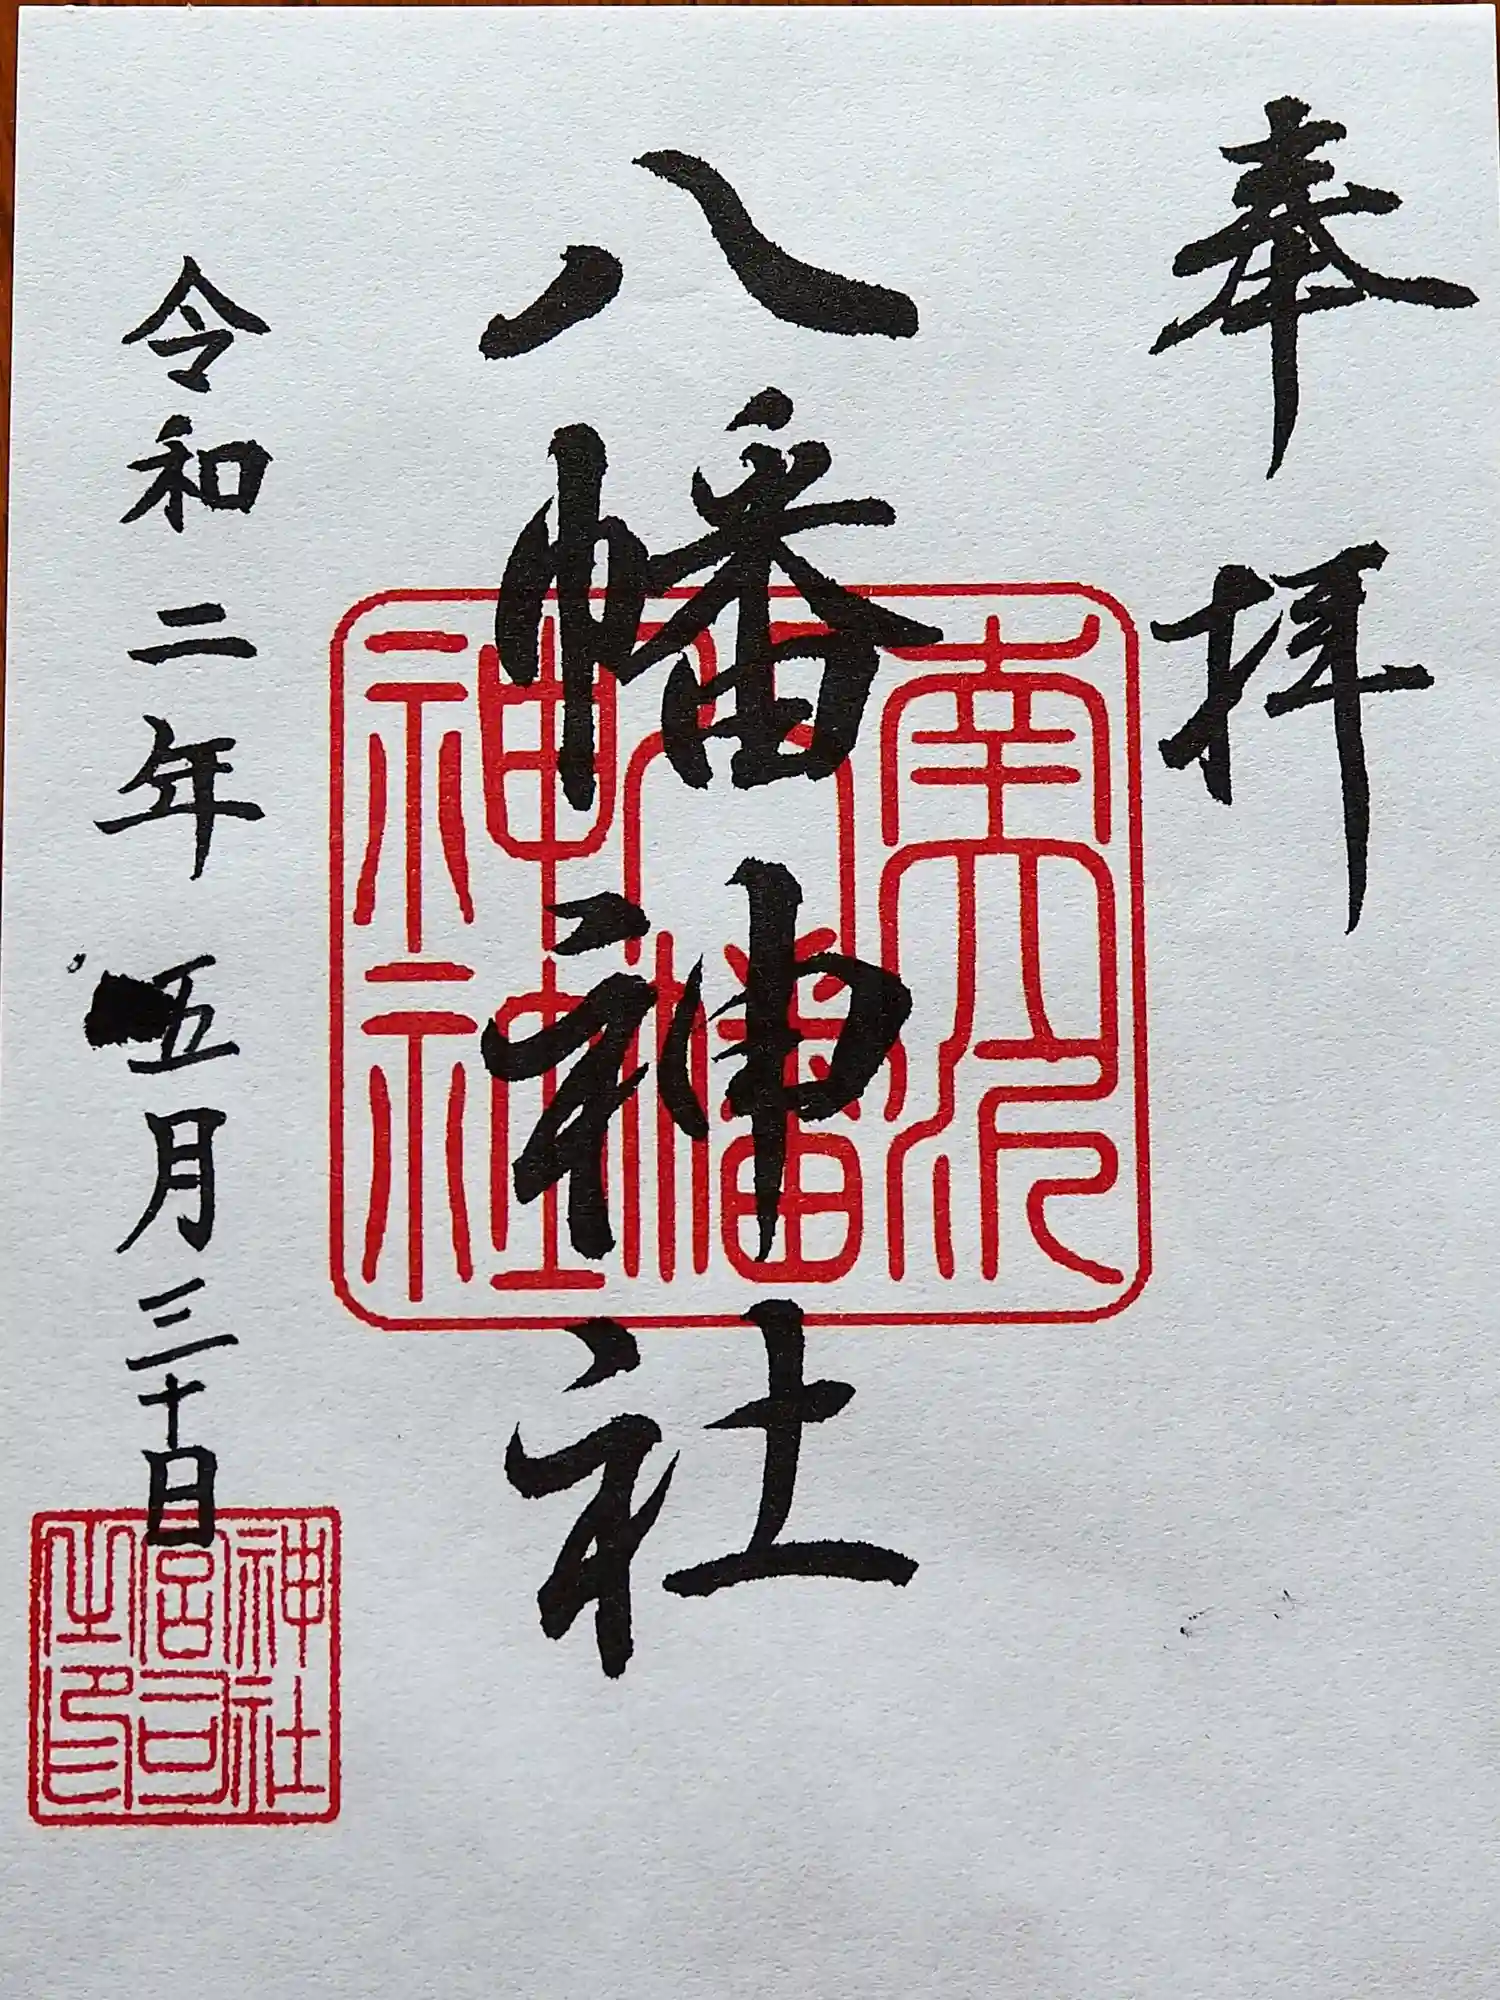 奉拝
八幡神社
令和二年五月三十日
八幡
神社
神社
宮司
之印